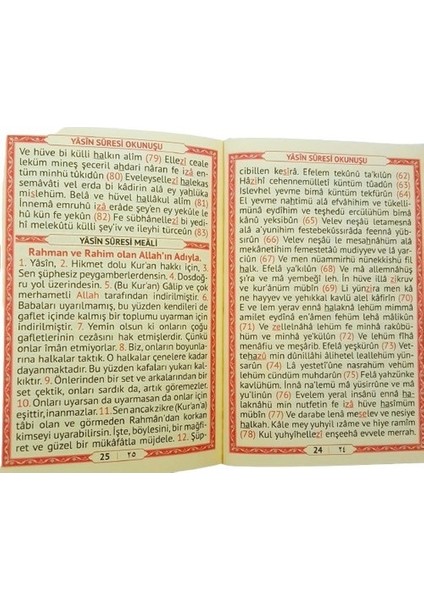 YÂSİN SÛRESİ OKUNUŞU
cibillen kesîrâ. Efelem tekûnû ta'kılûn (62)
Hâzihî cehennemülletî küntüm tûadûn (63)
İslevhel yevme bimâ küntüm tekfürûn (64)
El yevme nahtimü alâ efvâhihim ve tükelli-
münâ eydîhim ve teşhedü ercülühüm bimâ
kânû yeksibûn (65) Velev neşâü letamesnâ
alâ a'yunihim festebekussırâda feennâ yüb-
sirûn (66) Velev neşâü le mesahnâhüm alâ
mekânetihim femestetâû mudiyyev ve lâ yar-
ciûn (67) Ve men nüammirhü nünekkishü fil
halk. Efelâ ya'kılûn (68) Ve mâ allemnâhüş
şi'ra ve mâ yenbeğî leh. İn hüve illâ zikruv
ve kur'ânüm mübîn (69) Li yünzira men kâ
ne hayyev ve yehıkkal kavlü alel kâfirîn (70)
E ve lem yerav ennâ halaknâ lehüm mimmâ
amilet eydînâ en'âmen fehüm lehâ mâlikûn
(71) Ve zellelnâhâ lehüm fe minhâ rakûbü-
hüm ve minhâ ye'külûn (72) Ve lehüm fîhâ
menâfiu ve meşârib. Efelâ yeşkürûn (73) Vet-
tehazû min dûnillâhi âliheten leallehüm yün-
sarûn (74) Lâ yestetîûne nasrahüm ve hüm
lehüm cündüm muhdarûn (75) Felâ yahzünke
kavlühüm. İnnâ na'lemü mâ yüsirrûne ve mâ
yu'linûn (76) Evelem yeral insânü ennâ ha-
laknâhü min nutfetin fe izâ hüve hasîmüm
mübîn (77) Ve darabe lenâ meselev ve nesiye
halkah. Kâle mey yuhyil ızâme ve hiye ramîm
(78) Kul yuhyîhellezî enşeehâ evvele merrah.
24 | ٢٤
YÂSİN SÛRESİ OKUNUŞU
Ve hüve bi külli halkın alîm (79) Ellezî ceale
leküm mineş şeceril ahdari nâran fe izâ en-
tüm minhü tûkıdûn (80) Eveleysellezî halekas
semâvâti vel erda bi kâdirin alâ ey yahlüka
mislehüm. Belâ ve hüvel hallâkul alîm (81)
İnnemâ emruhû izâ erâde şey'en ey yekûle le
hû kün fe yekûn (82) Fe sübhânellezî bi yedi-
hî melekûtü külli şey'iv ve ileyhi türceûn (83)
YÂSİN SÛRESİ MEÂLİ
Rahman ve Rahim olan Allah'ın Adıyla.
1. Yâsîn, 2. Hikmet dolu Kur'an hakkı için, 3.
Sen şüphesiz peygamberlerdensin. 4. Dosdoğ-
ru yol üzerindesin. 5. (Bu Kur'an) Gâlip ve çok
merhametli Allah tarafından indirilmiştir. 6.
Babaları uyarılmamış, bu yüzden kendileri de
gaflet içinde kalmış bir toplumu uyarman için
indirilmiştir. 7. Yemin olsun ki onların çoğu
gafletlerinin cezâsını hak etmişlerdir. Çünkü
onlar îman etmiyorlar. 8. Biz, onların boyunla-
rına halkalar taktık. O halkalar çenelere kadar
dayanmaktadır. Bu yüzden kafaları yukarı kal-
kıktır. 9. Önlerinden bir set ve arkalarından bir
set çektik, onları sardık da, artık göremezler.
10. Onları uyarsan da uyarmasan da onlar için
eşittir, inanmazlar. 11. Sen ancak zikre (Kur'an'a)
tâbi olan ve görmeden Rahmân'dan korkan
kimseyi uyarabilirsin. İşte, böylesini, bir mağfi-
ret ve güzel bir mükâfâtla müjdele. 12. Şüp-
25 | ٢٥